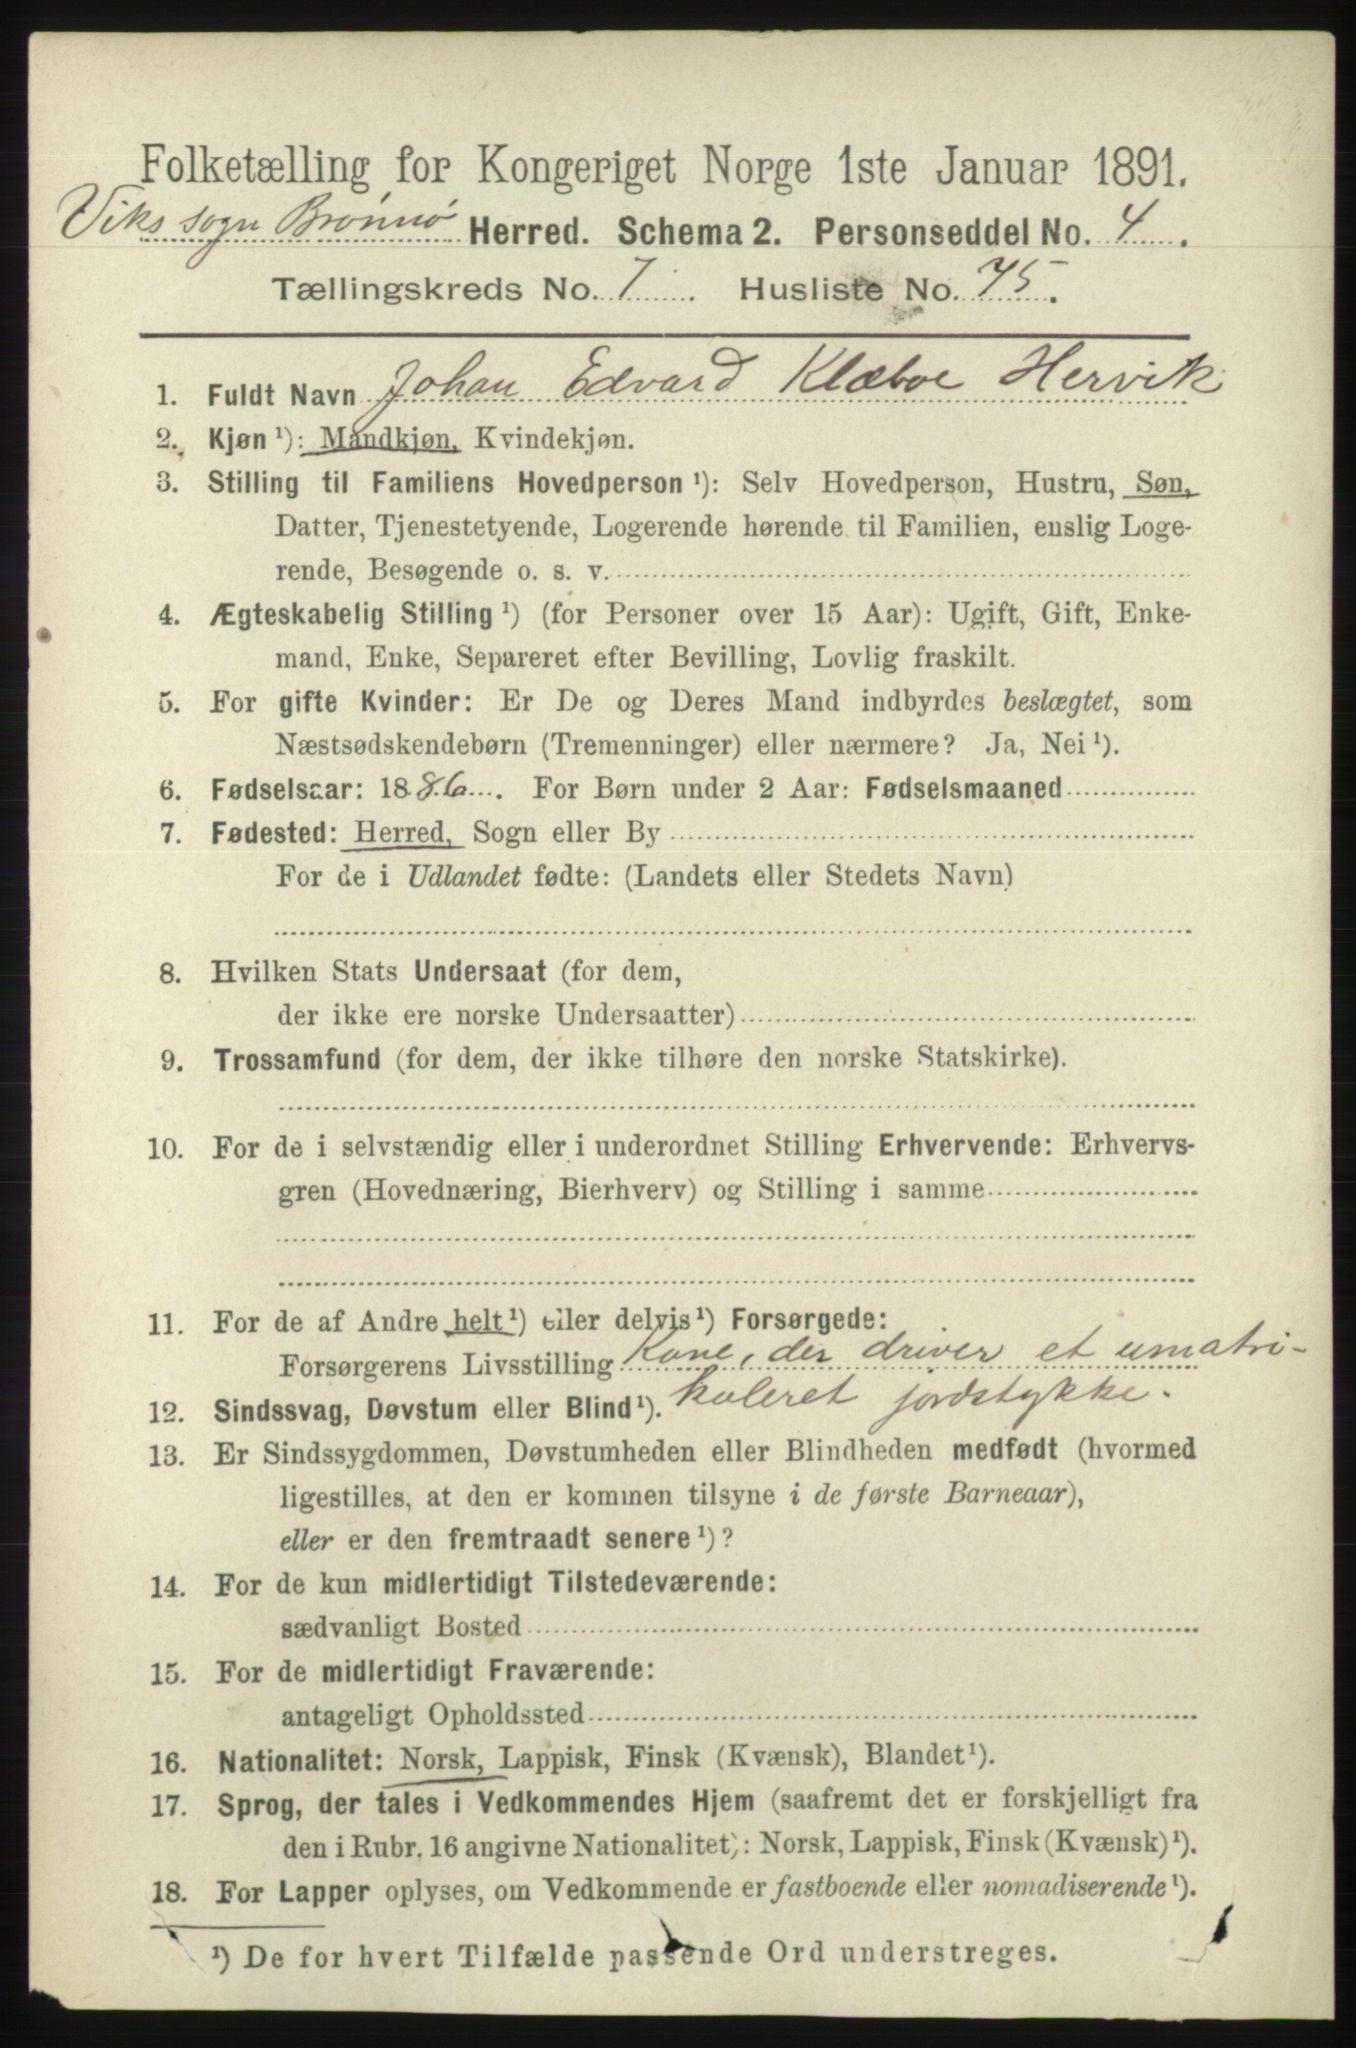 Folketælling for Kongeriget Norge 1ste Januar 1891.
Viks sogn Brønnø Herred. Schema 2. Personseddel No. 4.
Tællingskreds No. 7. Husliste No. 75.
1. Fuldt Navn Johan Edvard Klæboe Hervik
2. Kjøn ¹): Mandkjøn, Kvindekjøn.
3. Stilling til Familiens Hovedperson ¹): Selv Hovedperson, Hustru, Søn,
Datter, Tjenestetyende, Logerende hørende til Familien, enslig Loge-
rende, Besøgende o. s. v.
4. Ægteskabelig Stilling ¹) (for Personer over 15 Aar): Ugift, Gift, Enke-
mand, Enke, Separeret efter Bevilling, Lovlig fraskilt.
5. For gifte Kvinder: Er De og Deres Mand indbyrdes beslægtet, som
Næstsødskendebørn (Tremenninger) eller nærmere? Ja, Nei ¹).
6. Fødselsaar: 1886. For Børn under 2 Aar: Fødselsmaaned
7. Fødested: Herred, Sogn eller By
For de i Udlandet fødte: (Landets eller Stedets Navn)
8. Hvilken Stats Undersaat (for dem,
der ikke ere norske Undersaatter)
9. Trossamfund (for dem, der ikke tilhøre den norske Statskirke).
10. For de i selvstændig eller i underordnet Stilling Erhvervende: Erhvervs-
gren (Hovednæring, Bierhverv) og Stilling i samme
11. For de af Andre helt ¹) eller delvis ¹) Forsørgede:
Forsørgerens Livsstilling Kone, der driver et umatri-
kuleret jordstykke.
12. Sindssvag, Døvstum eller Blind ¹).
13. Er Sindssygdommen, Døvstumheden eller Blindheden medfødt (hvormed
ligestilles, at den er kommen tilsyne i de første Barneaar),
eller er den fremtraadt senere ¹)?
14. For de kun midlertidigt Tilstedeværende:
sædvanligt Bosted
15. For de midlertidigt Fraværende:
antageligt Opholdssted
16. Nationalitet: Norsk, Lappisk, Finsk (Kvænsk), Blandet ¹).
17. Sprog, der tales i Vedkommendes Hjem (saafremt det er forskjelligt fra
den i Rubr. 16 angivne Nationalitet): Norsk, Lappisk, Finsk (Kvænsk) ¹).
18. For Lapper oplyses, om Vedkommende er fastboende eller nomadiserende ¹).
¹) De for hvert Tilfælde passende Ord understreges.